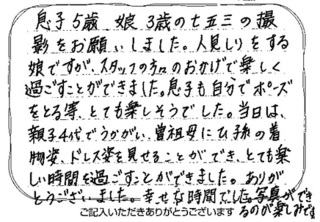 息子5歳 娘3歳の七五三の撮
影をお願いしました。人見しりをする
娘ですが、スタッフの方のおかげで楽しく
過ごすことができました。息子も自分でポーズ
をとる等、とても楽しそうでした。当日は、
親子4代でうかがい、曽祖母にひ孫の着
物姿、ドレス姿を見せることができ、とても楽
しい時間を過ごすことができました。ありが
とうございました。幸せな時間でした。写真ができ
るのが楽しみです
ご記入いただきありがとうございます